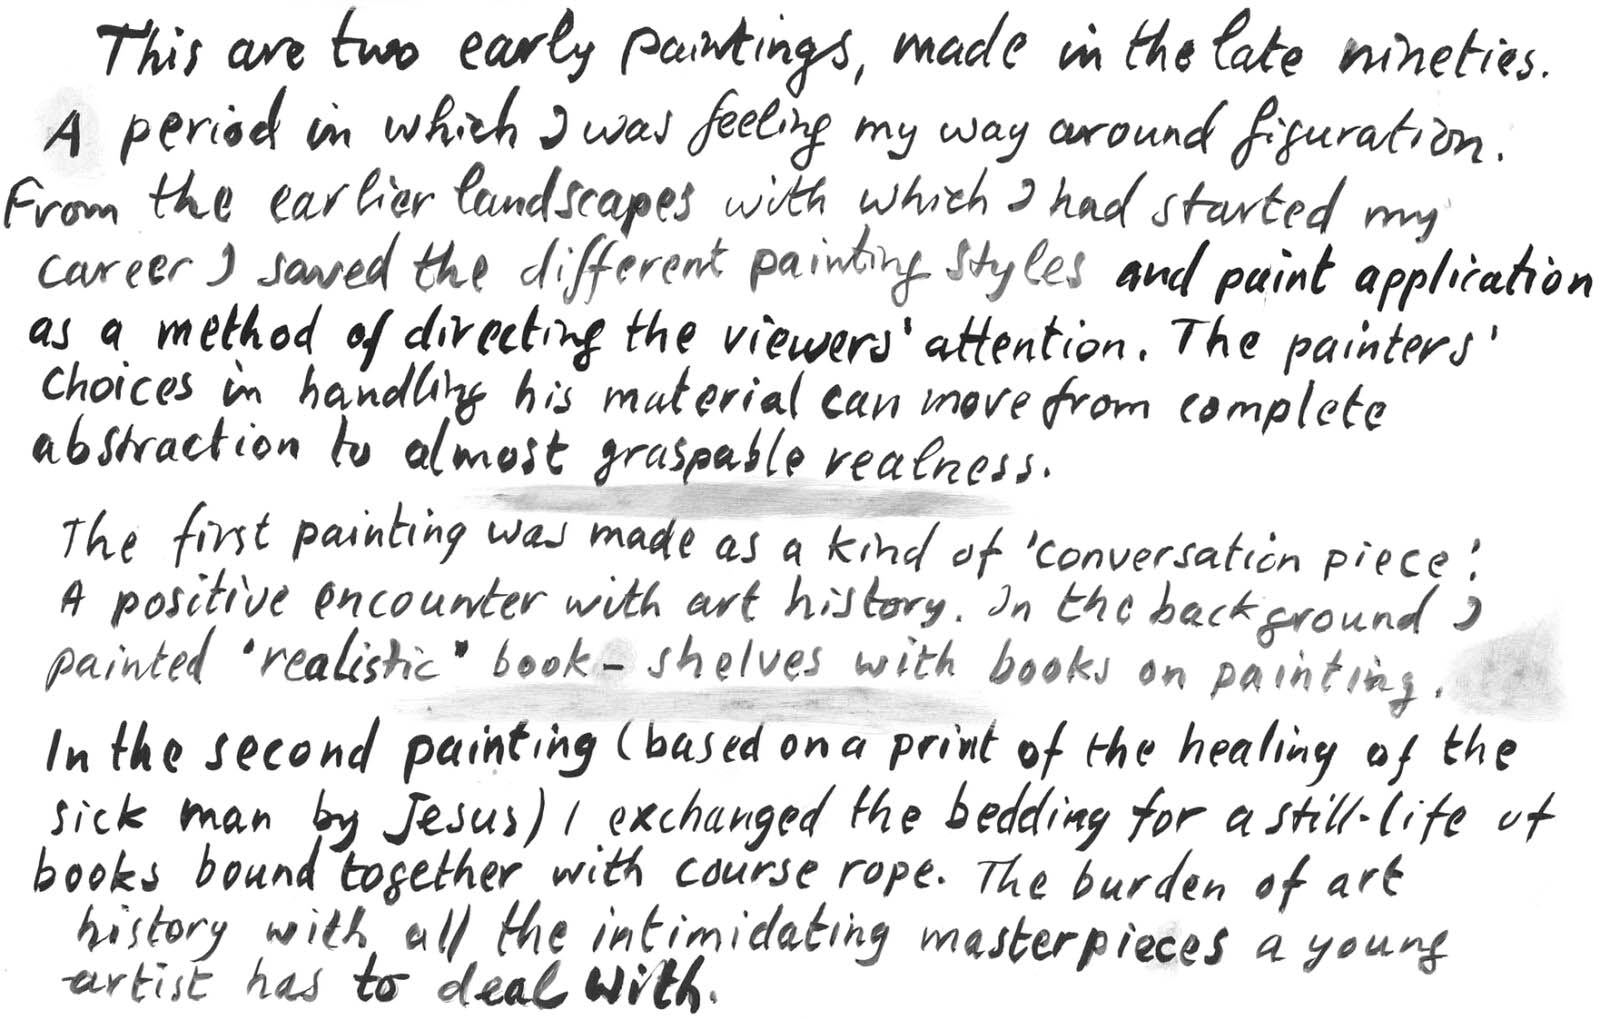 This are two early paintings, made in the late nineties.
A period in which I was feeling my way around figuration.
From the earlier landscapes with which I had started my
career I saved the different painting styles and paint application
as a method of directing the viewers' attention. The painters'
choices in handling his material can move from complete
abstraction to almost graspable realness.
The first painting was made as a kind of 'conversation piece'.
A positive encounter with art history. In the background I
painted "realistic" book-shelves with books on painting.
In the second painting (based on a print of the healing of the
sick man by Jesus) I exchanged the bedding for a still-life of
books bound together with course rope. The burden of art
history with all the intimidating masterpieces a young
artist has to deal with.